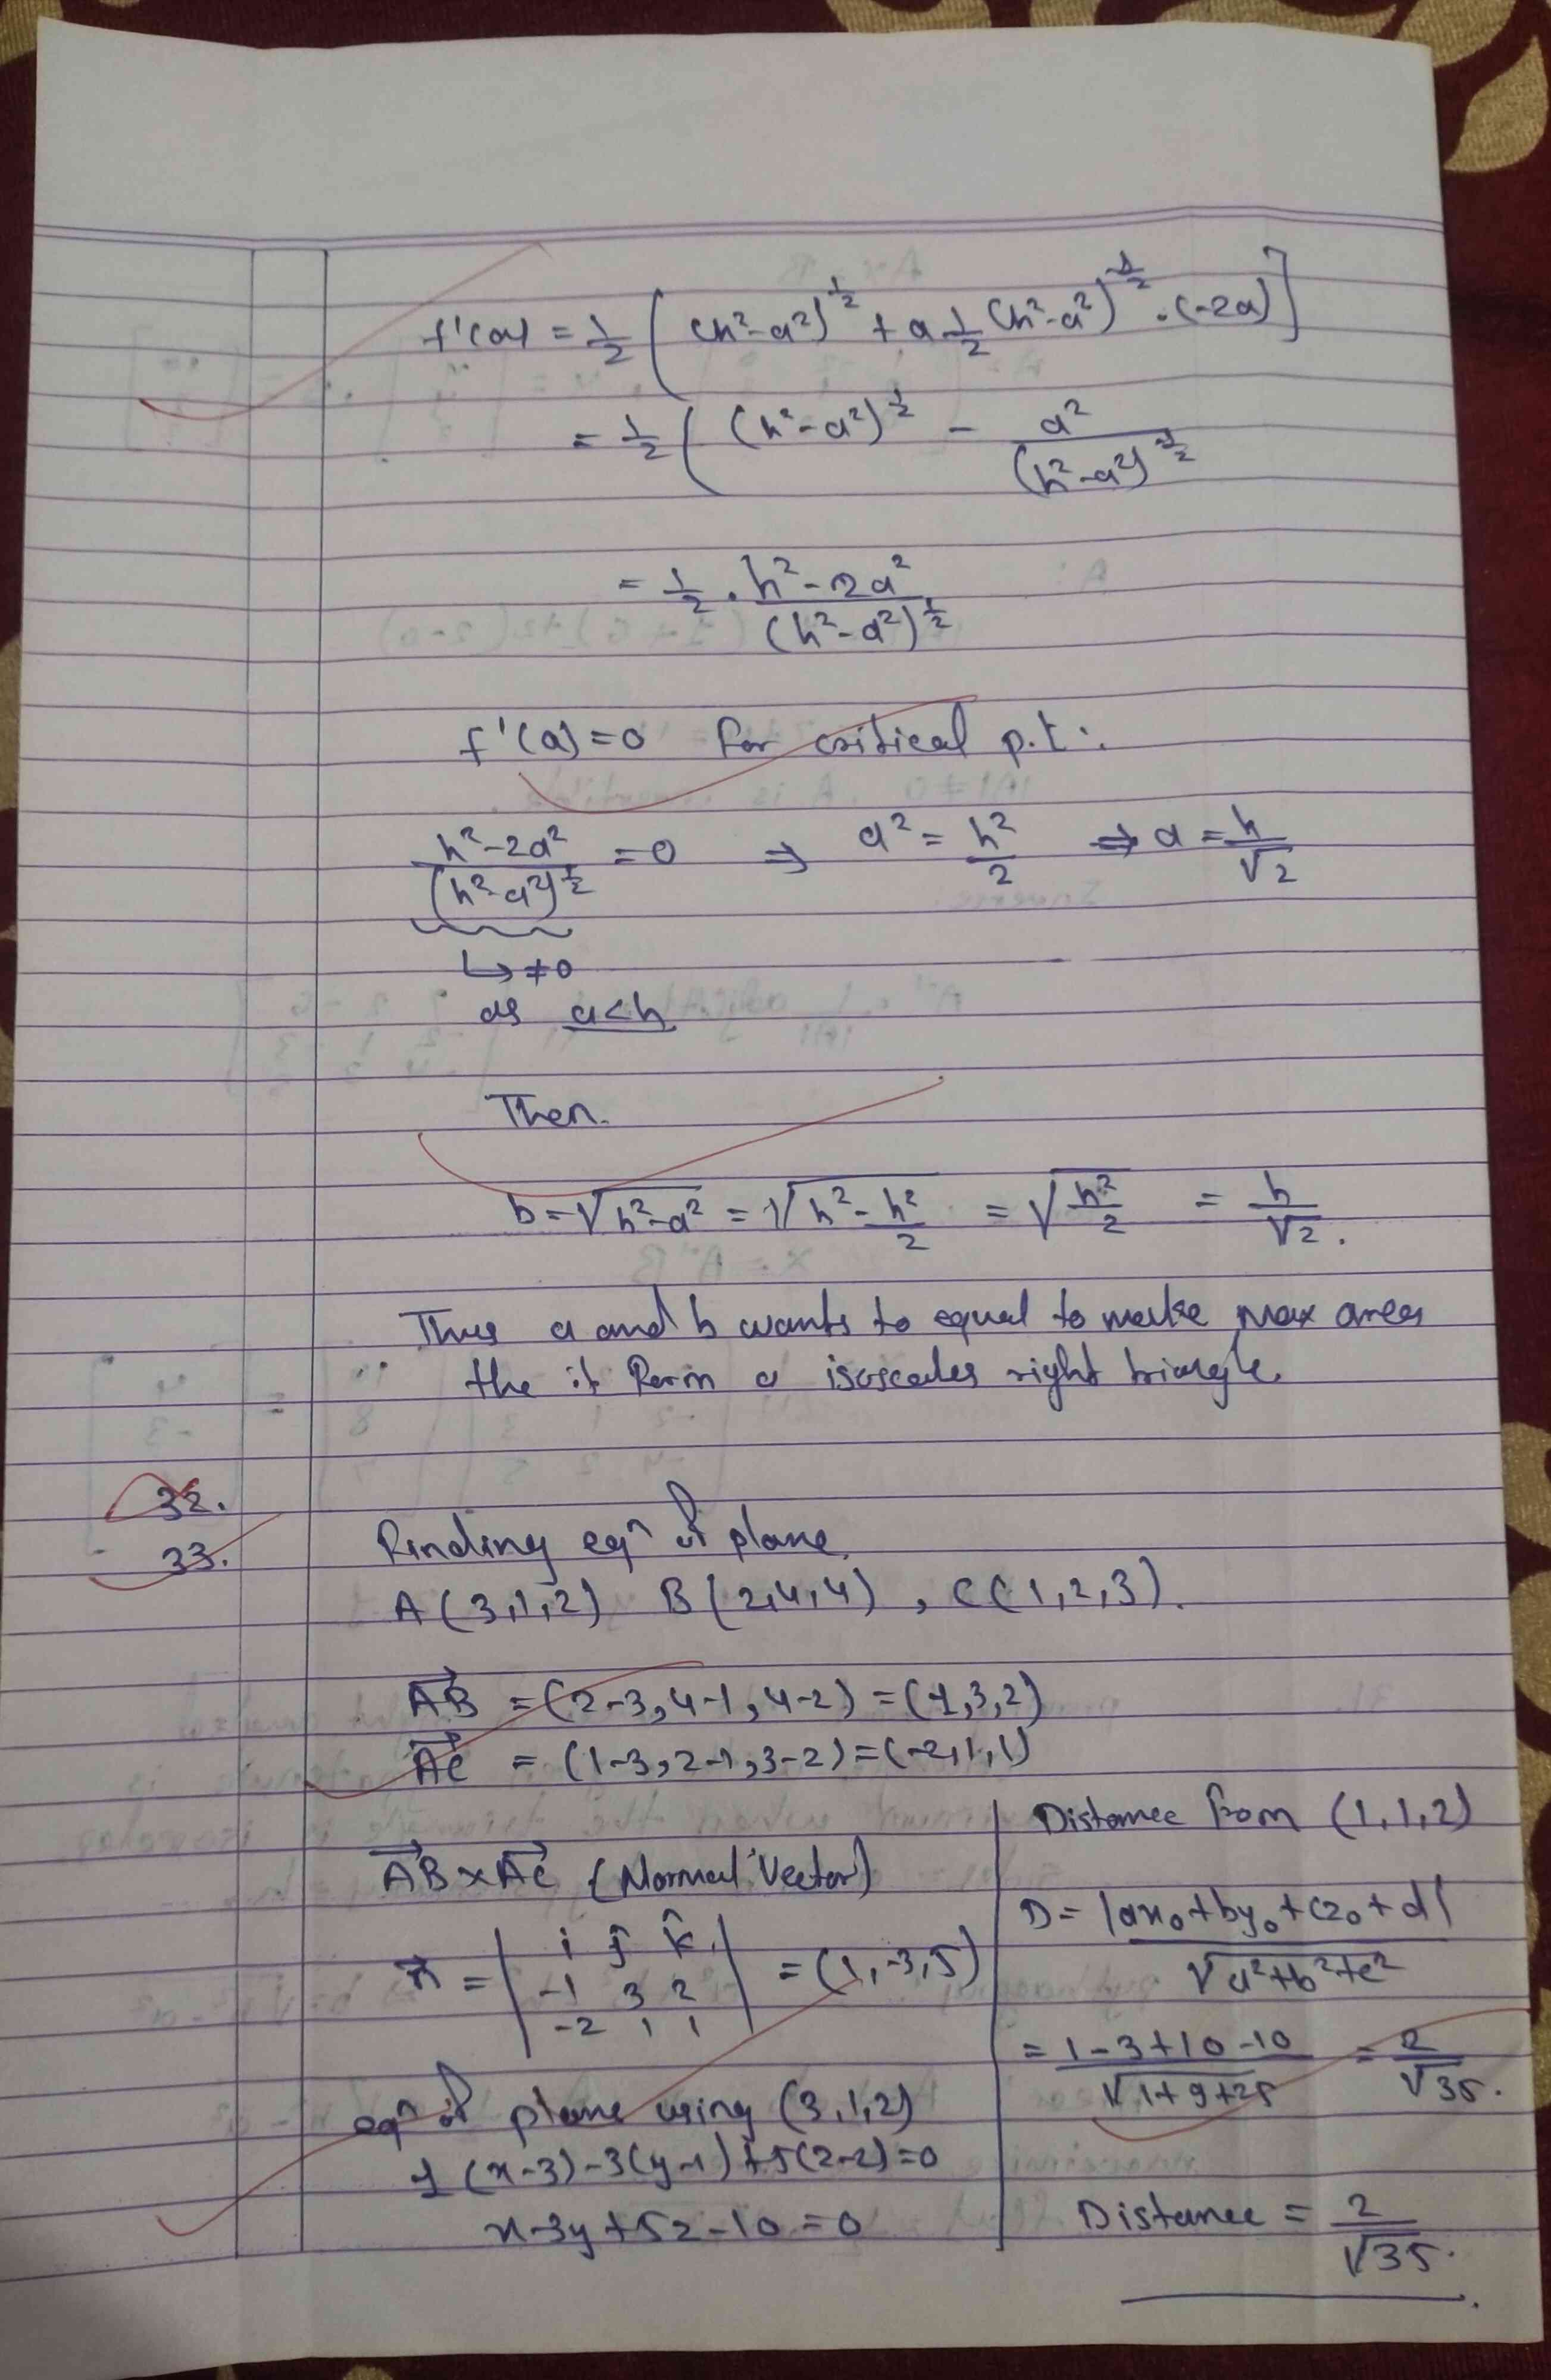 f'(a) = 1/2 [ (h²-a²)^1/2 + a 1/2 (h²-a²)^-1/2 . (-2a) ]
= 1/2 ( (h²-a²)^1/2 - a²/(h²-a²)^1/2
= 1/2 . h²-2a²/(h²-a²)^1/2
f'(a) = 0 for critical p.t.
h²-2a²/(h²-a²)^1/2 = 0 ⇒ a² = h²/2 ⇒ a = h/√2
↳ ≠0
as a<h
Then.
b = √h²-a² = √h²-h²/2 = √h²/2 = h/√2.
Thus a and b wants to equal to make max area
the it form a isosceles right triangle.
32.
33. Finding eqⁿ of plane.
A(3,1,2) B(2,4,4), C(1,2,3).
AB = (2-3, 4-1, 4-2) = (-1,3,2)
AC = (1-3, 2-1, 3-2) = (-2,1,1)
AB × AC (Normal Vector)
n = | i ĵ k̂ |
| -1 3 2 | = (1,-3,5)
| -2 1 1 |
eqⁿ of plane using (3,1,2)
1(x-3)-3(y-1)+5(z-2)=0
x-3y+5z-10=0
Distance from (1,1,2)
D = |ax₀+by₀+cz₀+d|/√a²+b²+c²
= 1-3+10-10/√1+9+25 = 2/√35.
Distance = 2/√35.